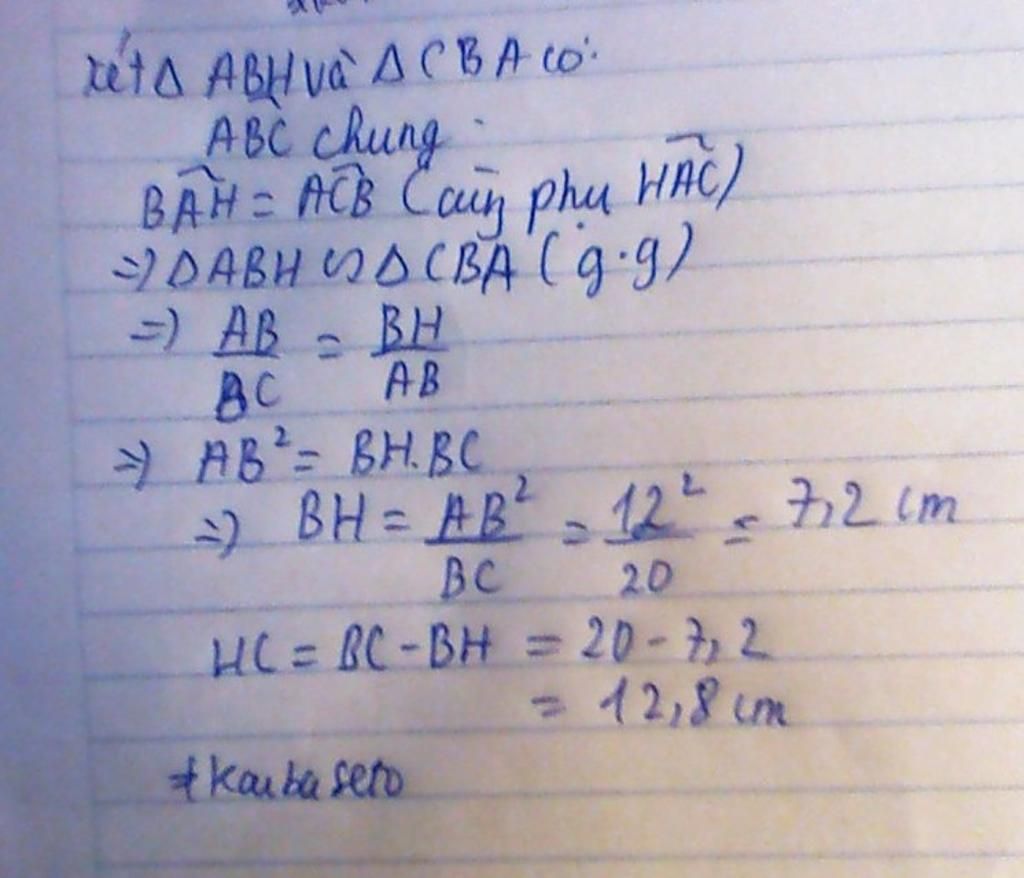 Xét Δ ABH và Δ CBA có:
ABC chung
BAH = ACB (cùng phụ HAC)
=> Δ ABH ∽ Δ CBA (g.g)
=> AB/BC = BH/AB
=> AB² = BH.BC
=> BH = AB²/BC = 12²/20 = 7,2 cm
HC = BC - BH = 20 - 7,2
= 12,8 cm
#Kaiba seto